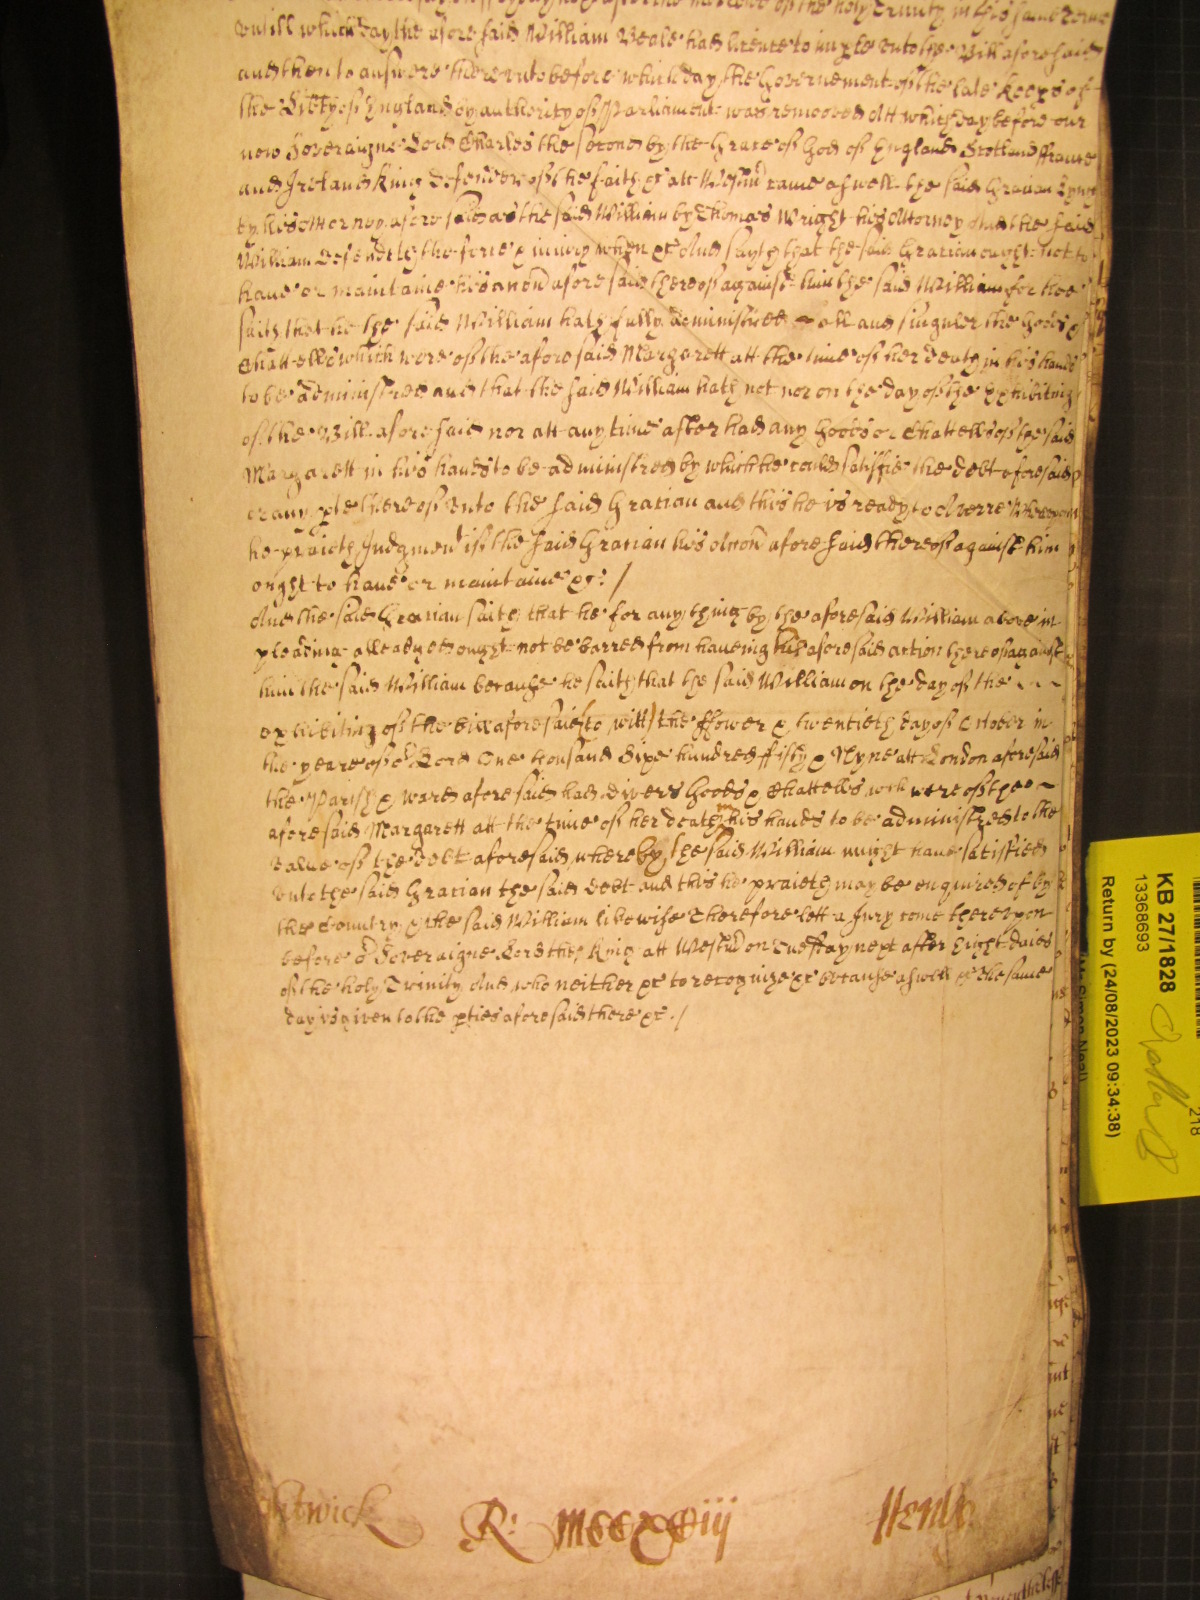 the morrowe of the holy Trinity in this same Terme
vntill which day the afore said William Veale had licence to imple vnto the Bill aforesaid
and then to answere therevnto before which day the Governement of the late Keeps of
the Lib'ty of England by authority of Parliament was remooved Att which day before our
now Soveraigne Lord Charles the second by the Grace of God of England Scotland ffrance
and Ireland King Defender of the faith &c att Westm' came aswell the said Gracian
by his Attorney afore said as the said William by Thomas Wright his Attorney And the said
William Defendeth the force & iniury when &c And sayth that the said Gracian ought not to
haue or maintaine his accon aforesaid thereof against him the said William for hee
saith that he the said William hath fully administred all and singuler the goods &
Chattells which were of the aforesaid Margarett att the time of her death in his hands
to be administred and that the said William hath not nor on the day of the Exhibiting
of the Bill afore said nor att any time after had any goods or Chattells of the said
Margarett in his hands to be administred by which he could satisfie the debt aforesaid
or any pte thereof vnto the said Gracian and this he is ready to Averre Wherevpon
he praieth Judgment if the said Gracian his Accon afore said thereof against him
ought to haue or maintaine &c: /
And the said Gracian saith that he for any thing by the aforesaid William above in
pleading alleadged ought not be barred from haueing his aforesaid action thereof against
him the said William because he saith that the said William on the day of the
exhibiting of the bill aforesaid (to witt) the ffower & twentieth day of October in
the yeare of or Lord One thousand Sixe hundred ffifty & Nyne att London aforesaid
the Parish & ward afore said had divers goods & Chattells wch were of the
aforesaid Margarett att the time of her death in his hands to be administred to the
value of the debt aforesaid whereby the said William might haue satisfied
vnto the said Gracian the said debt and this he praieth may be enquired of by
the Country & the said William likewise Therefore lett a Jury come therevpon
before or Soveraigne Lord the King att Westm' on Tuesday next after Eight daies
of the holy Trinity And who neither &c to recognize &c because aswell &c The same
day is given to the pties aforesaid there &c. /
R: MCCXCiij
KB 27/1828
13368693
Return by (24/08/2023 09:34:38)
218